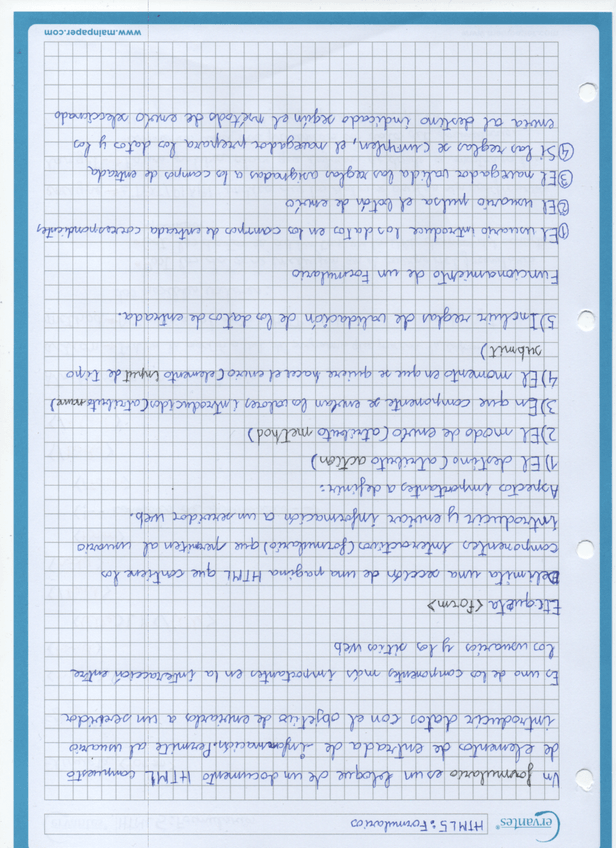 cervantes®
HTML5: Formularios
Un formulario es un bloque de un documento HTML compuesto
de elementos de entrada de información. Permite al usuario
introducir datos con el objetivo de enviarlos a un servidor
Es uno de los componentes más importantes en la interacción entre
los usuarios y los sitios web
Etiqueta <form>
Delimita una sección de una pagina HTML que contiene los
componentes interactivos (formulario) que permiten al usuario
introducir y enviar información a un servidor web.
Aspectos importantes a definir:
1) El destino (atributo action)
2) El modo de envío (atributo method)
3) En que componente se envian los valores introducidos (atributo name)
4) El momento en que se quiere hacer el envio (elemento input de tipo
submit)
5) Incluir reglas de validación de los datos de entrada.
Funcionamiento de un Formulario
① El usuario introduce los datos en los campos de entrada correspondientes
② El usuario pulsa el botón de envío
③ El navegador valida las reglas asignadas a los campos de entrada
④ Si las reglas se cumplen, el navegador prepara los datos y los
envía al destino indicado según el método de envío seleccionado
www.mainpaper.com